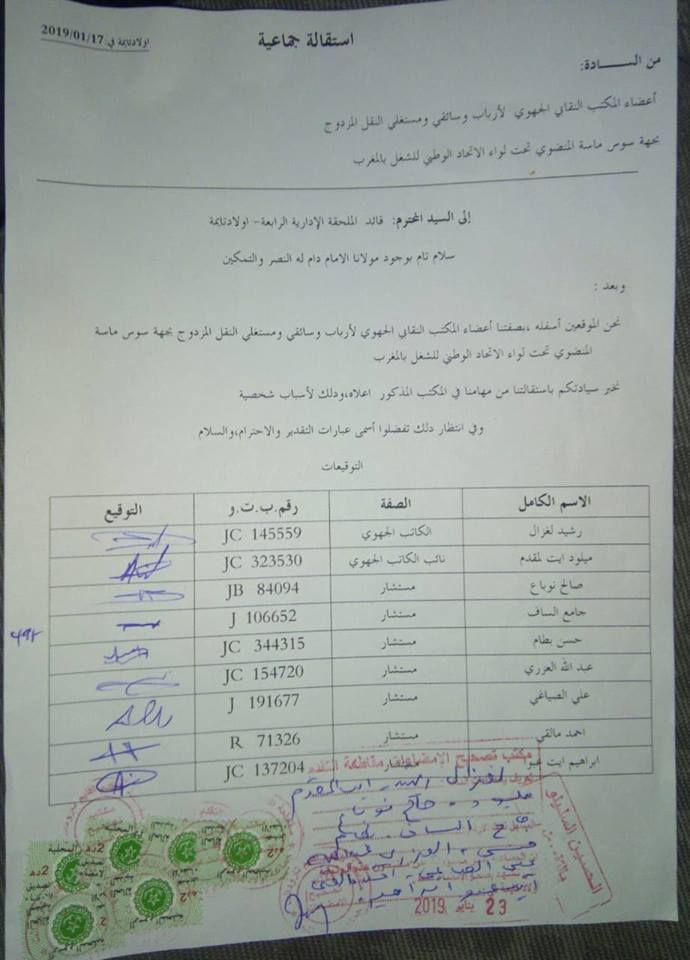 اولادتايمة في: 2019/01/17
استقالة جماعية
من الســـــادة:
أعضاء المكتب النقابي الجهوي لأرباب وسائقي ومستغلي النقل المزدوج
بجهة سوس ماسة المنضوي تحت لواء الاتحاد الوطني للشغل بالمغرب
إلى السيد المحترم: قائد الملحقة الإدارية الرابعة- اولادتايمة
سلام تام بوجود مولانا الامام دام له النصر والتمكين
وبعد :
نحن الموقعين أسفله ،بصفتنا أعضاء المكتب النقابي الجهوي لأرباب وسائقي ومستغلي النقل المزدوج بجهة سوس ماسة
المنضوي تحت لواء الاتحاد الوطني للشغل بالمغرب
نخبر سيادتكم باستقالتنا من مهامنا في المكتب المذكور اعلاه،وذلك لأسباب شخصية
وفي انتظار دلك تفضلوا أسمى عبارات التقدير والاحترام،والسلام
التوقيعات
الاسم الكامل الصفة رقم.ب.ت.و التوقيع
رشيد لغزال الكاتب الجهوي JC 145559
ميلود ايت لمقدم نائب الكاتب الجهوي JC 323530
صالح نوباع مستشار JB 84094
جامع الساف مستشار J 106652
حسن بطام مستشار JC 344315
عبد الله العزري مستشار JC 154720
علي الصياغي مستشار J 191677
احمد مالقي مستشار R 71326
ابراهيم ايت عبو مستشار JC 137204
مكتب تصحيح الإمضاء
23 يناير 2019